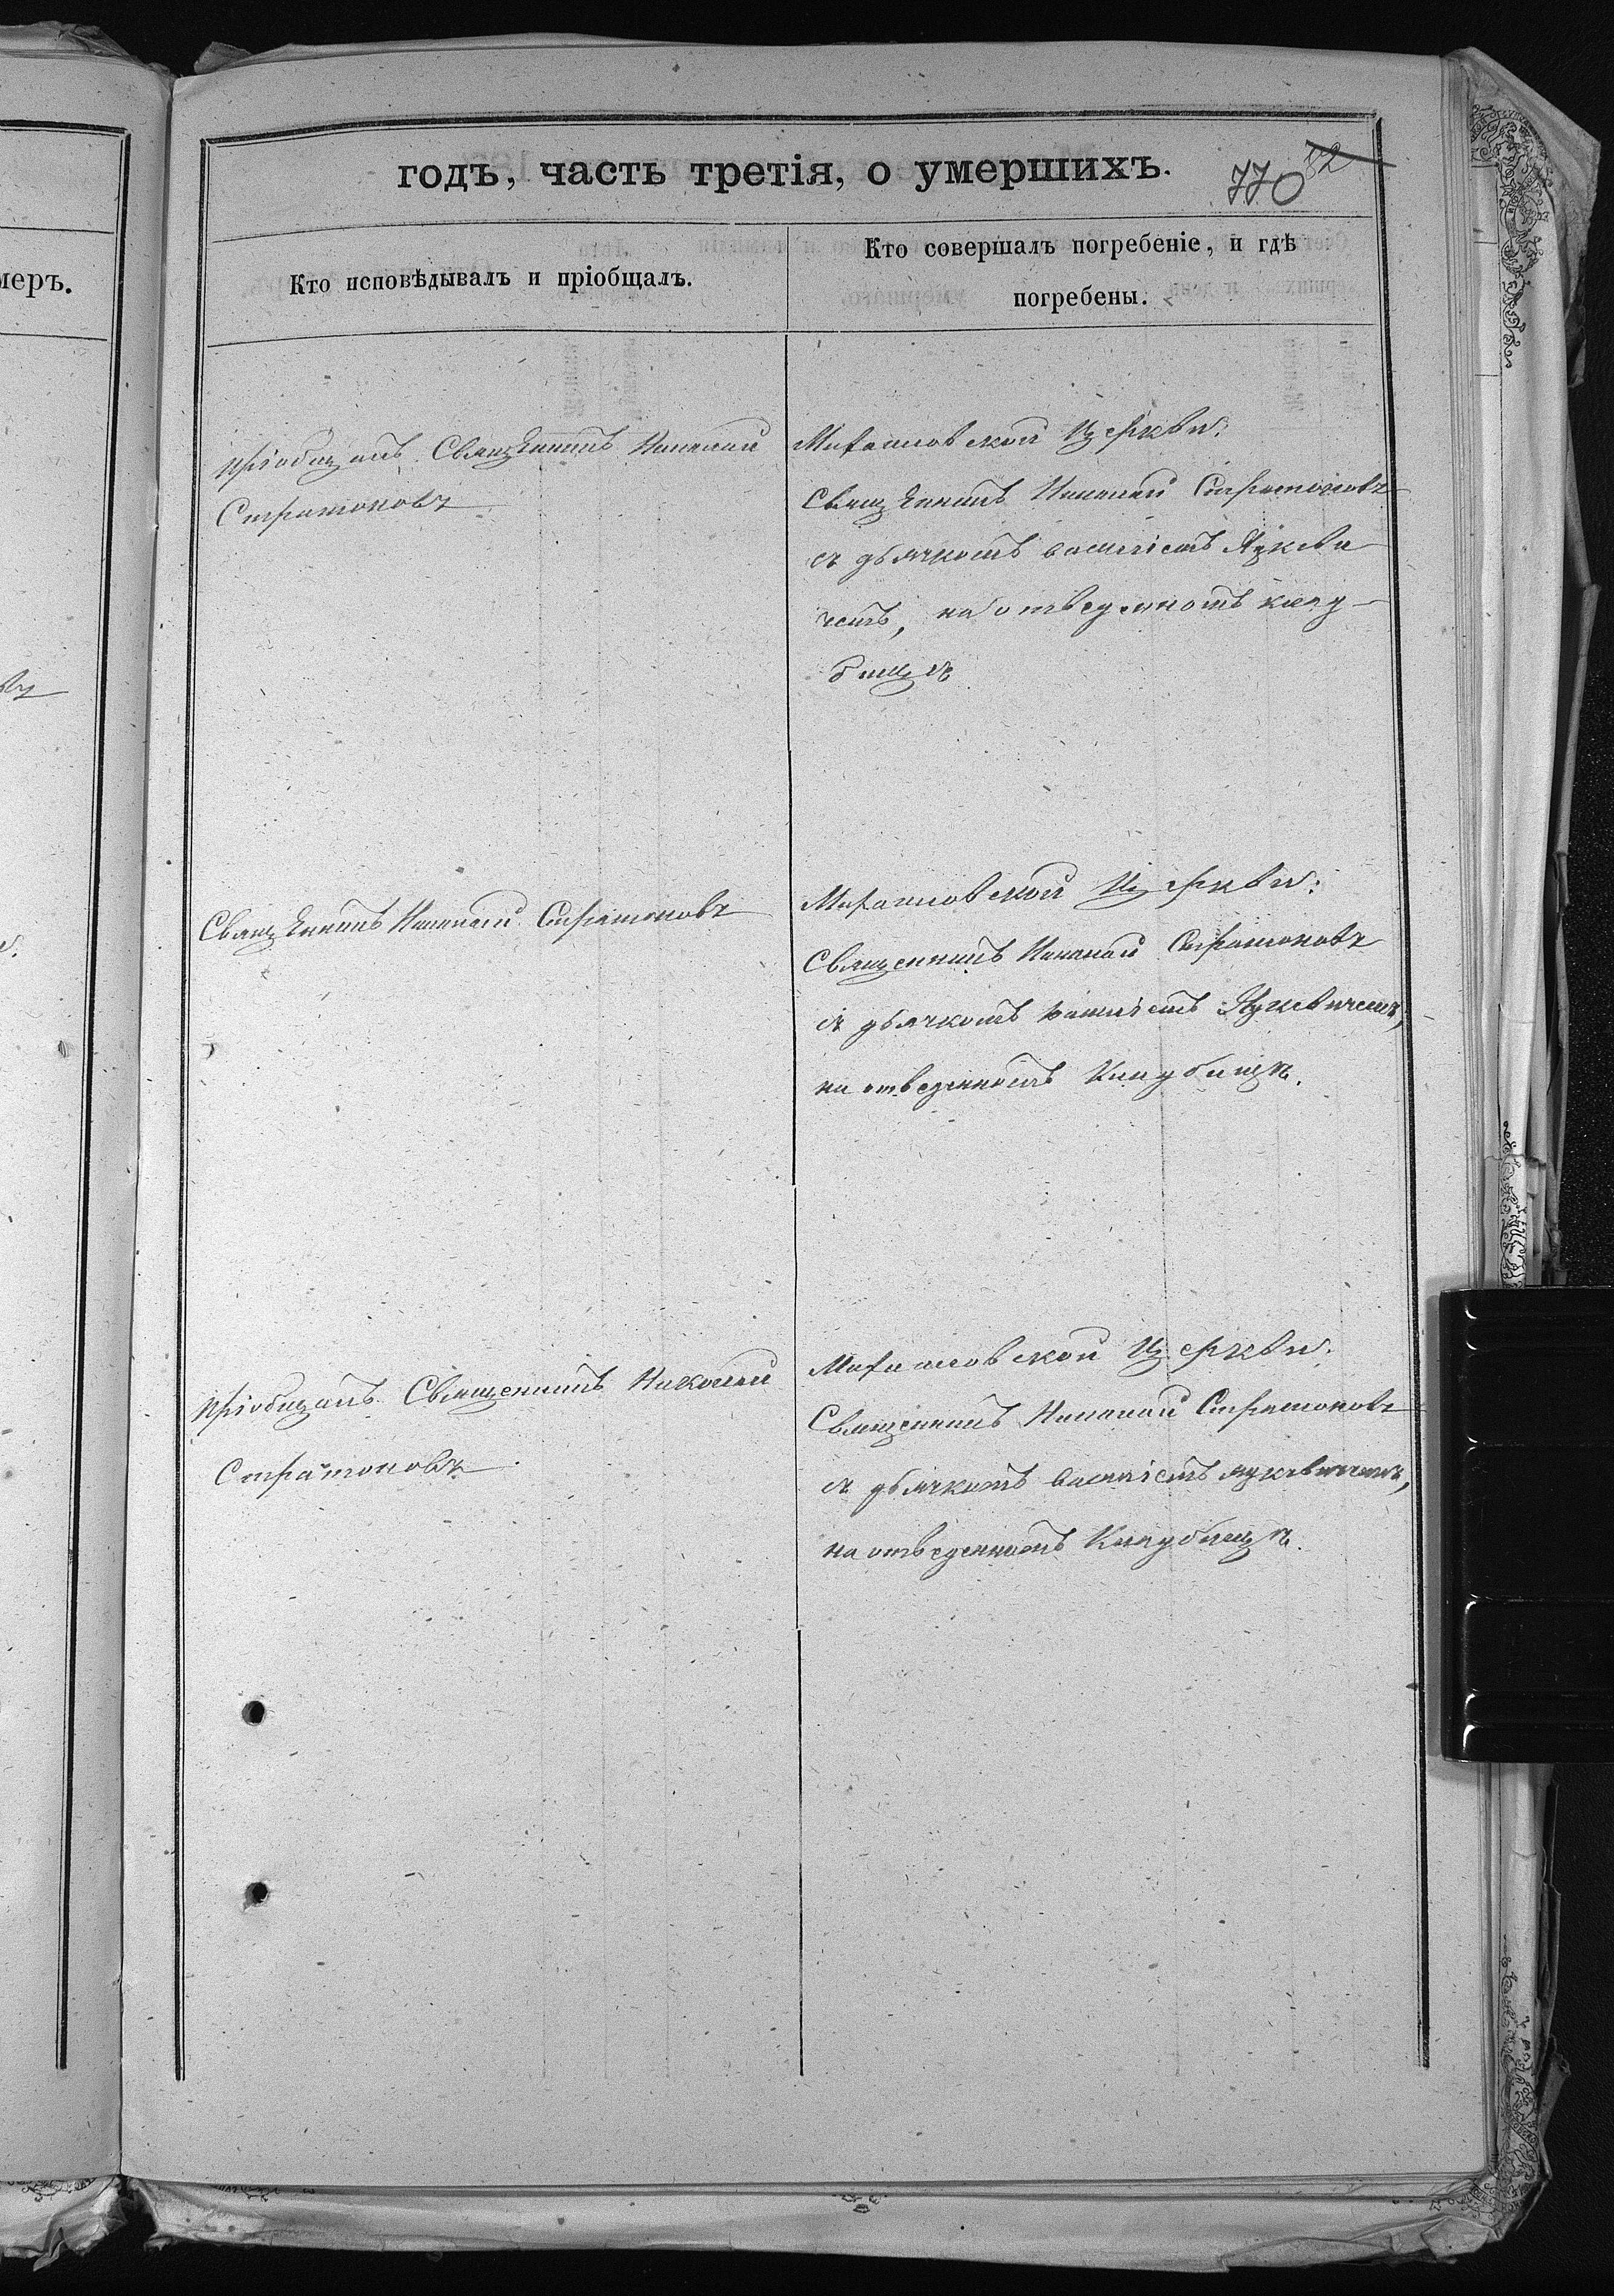 годъ, часть третія, о умершихъ.
770 82
Кто исповѣдывалъ и пріобщалъ.
Кто совершалъ погребеніе, и гдѣ
погребены.
меръ.
пріобщалъ Священникъ Николай
Стратоновъ
церкви:
Священникъ Николай Стратоновъ
съ дьячкомъ Василіемъ
чемъ, на отведенномъ клад-
бищѣ
Священникъ Николай Стратоновъ
церкви:
Священникъ Николай Стратоновъ
съ дьячкомъ Василіемъ
на отведенномъ кладбищѣ.
пріобщалъ Священникъ Николай
Стратоновъ.
церкви:
Священникъ Николай Стратоновъ
съ дьячкомъ Василіемъ
на отведенномъ кладбищѣ.